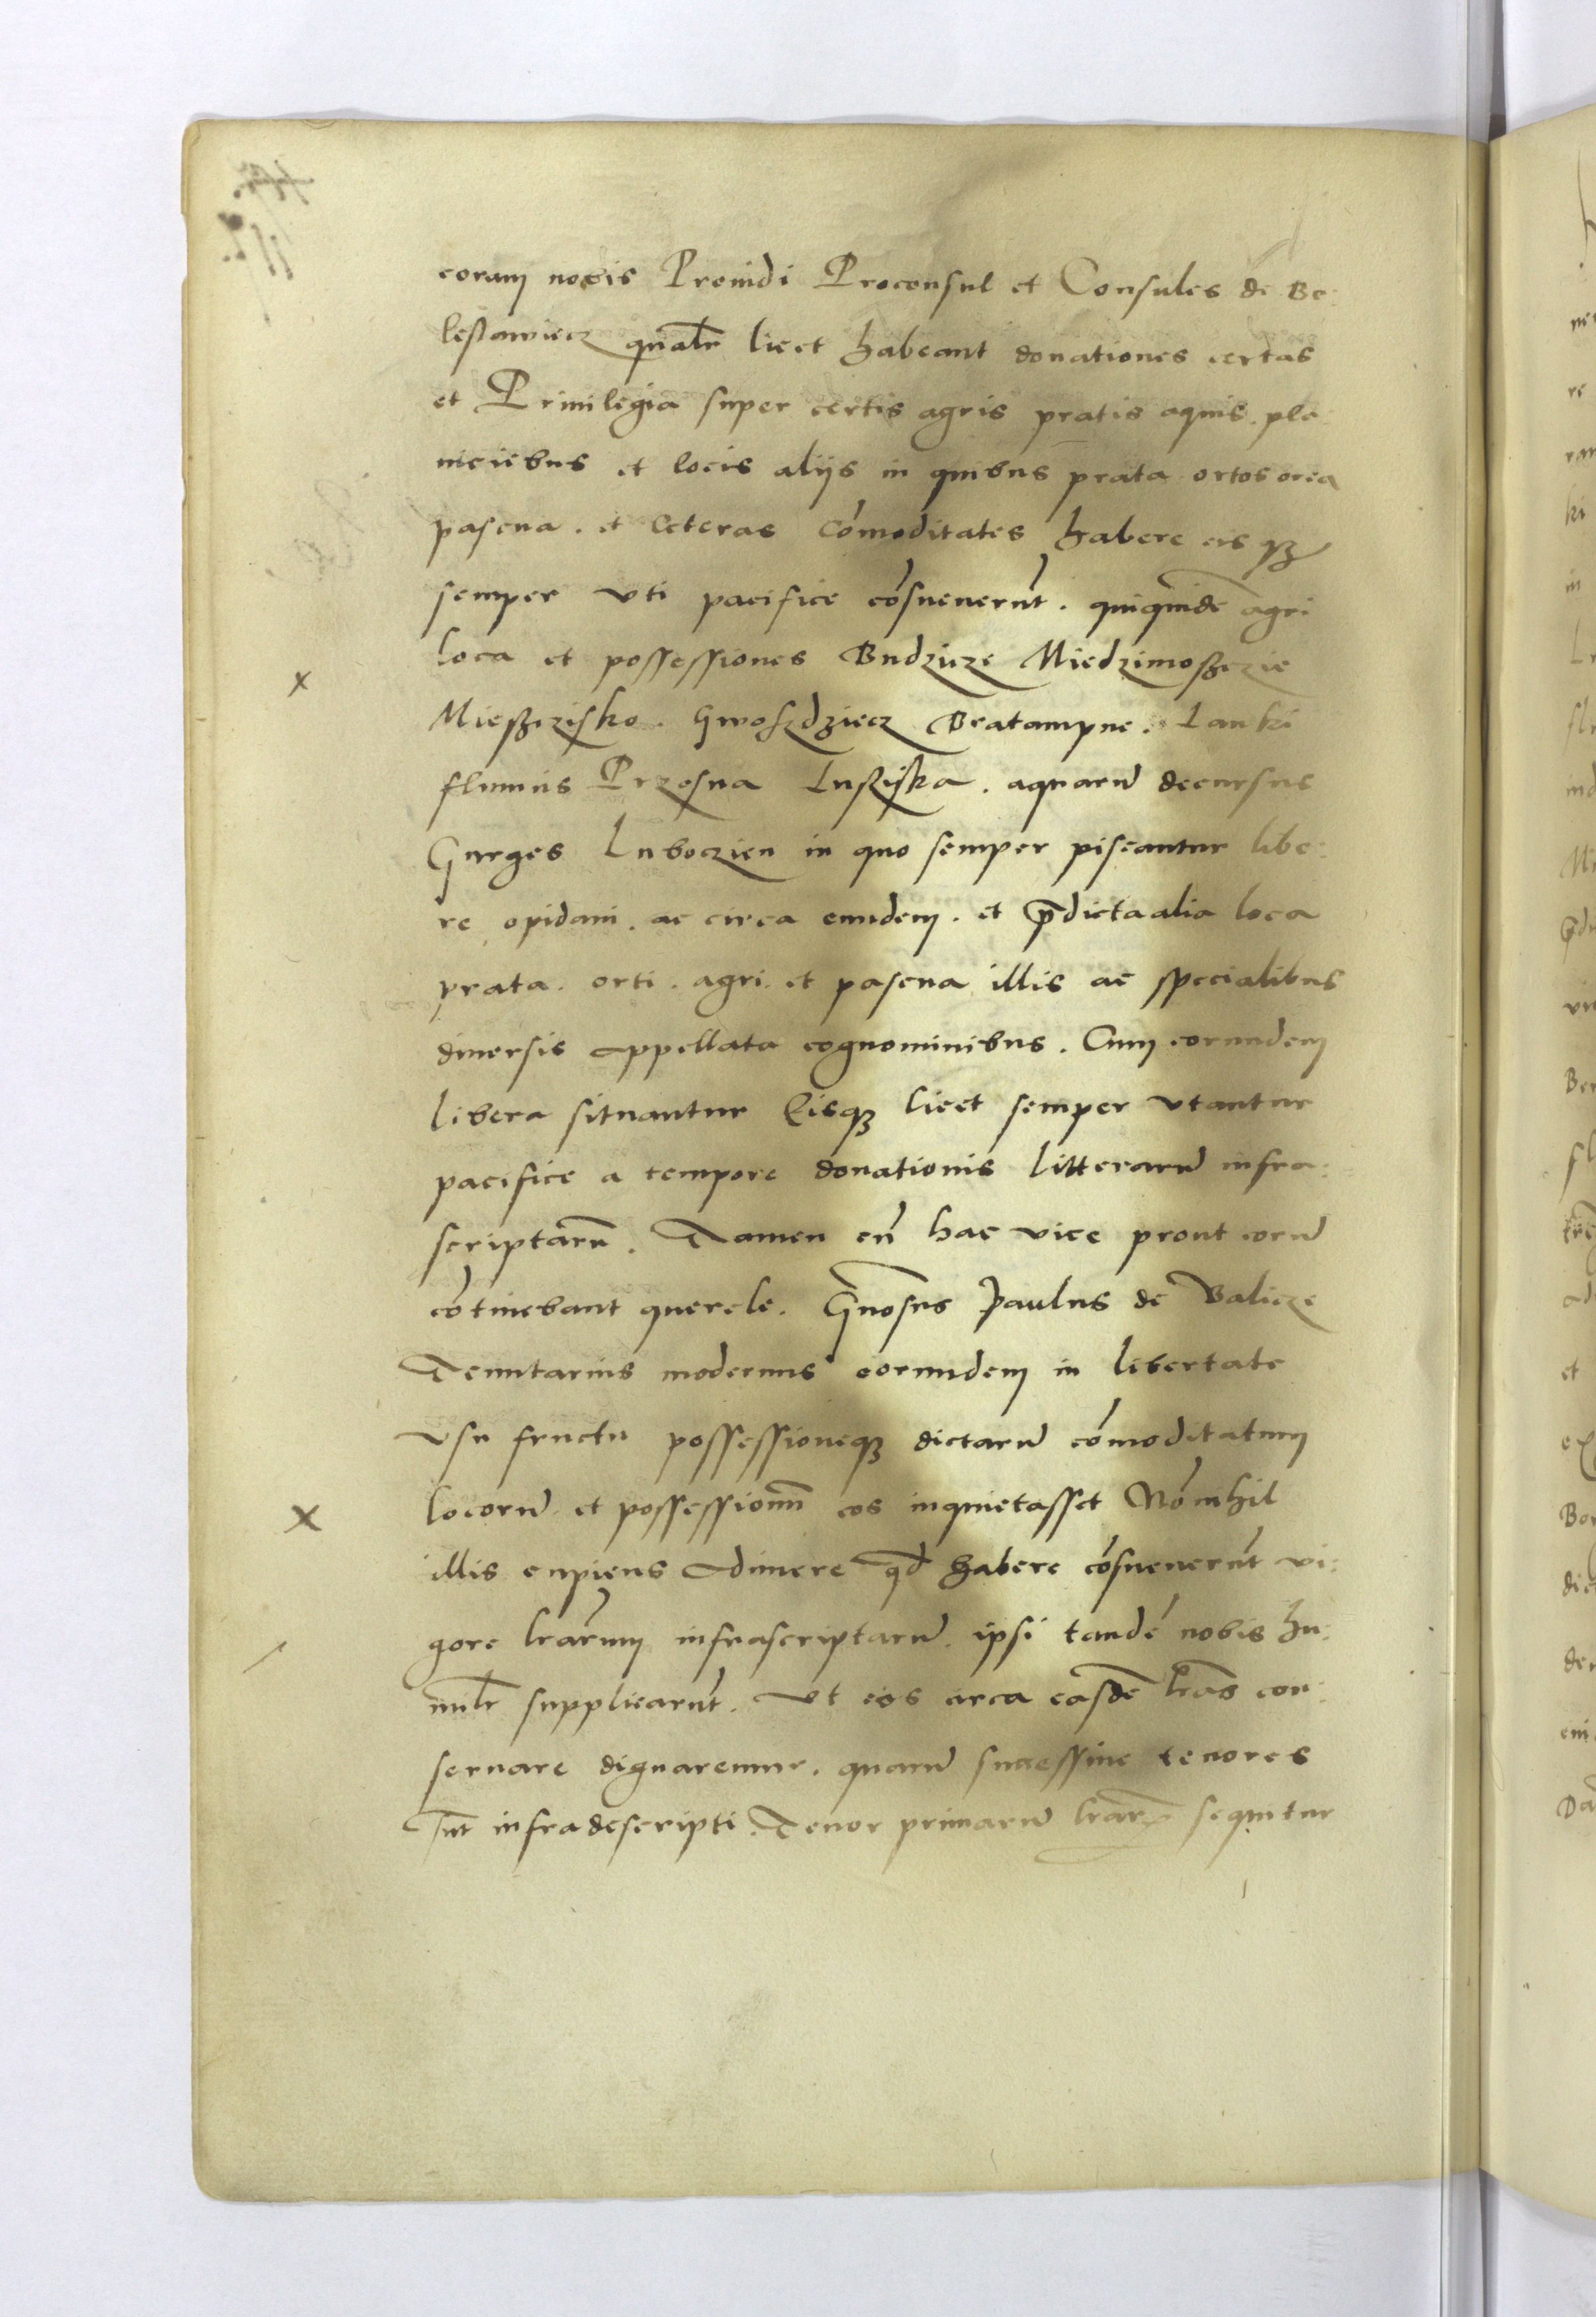 coram nobis Prouidi Proconsul et Consules de Bo:
leslawiecz qualr̃ licet habeant donationes certas
et Priuilegia super certis agris pratis aquis. pla
niciebus et locis alijs in quibus prata ortos orea
pascua. et ceteras cōmoditates habere eis qz
semper vti pacifice cōsueuerūt. quiquidē agri
loca et possessiones Budzicze Miedzimoßczie
Mießczisko. Gwoszdziecz Bratampne. Lanki
fluuius Przosna Lußiska. aquarū decursus
Gurges Luboczien in quo semper piscantur libe:
re opidani. ac circa eundem. et p̄dicta alia loca
prata. orti. agri. et pascua illis ac specialibus
diuersis appellata cognominibus. Cum eorundem
libera situantur Eisqz licet semper vtantur
pacifice a tempore donationis litterarū infra:
scriptarū. Tamen cū hac vice prout eorū
cōtinebant querele. Gn̄osus Paulus de Balicze
Tenutarius modernus eorundem in libertate
vsu fructu possessioneqz dictarū cōmoditatum
locorū et possessionū eos inquietasset Nōnihil
illis cupiens adimere qd̄ habere cōsueuerūt vi:
gore lr̄arum infrascriptarū. ipsi tandē nobis hu:
milr̄ supplicarūt. Vt eos circa easdē lr̄as con:
seruare dignaremur. quarū successiue tenores
sūt infradescripti. Tenor primarū lr̄arū sequitur